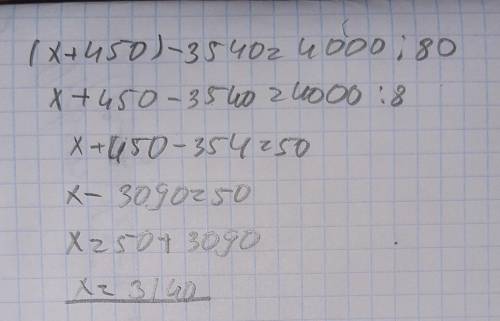 (x+450)-3540=4000:80
x+450-3540=4000:8
x+450-354=50
x-3090=50
x=50+3090
x=3140